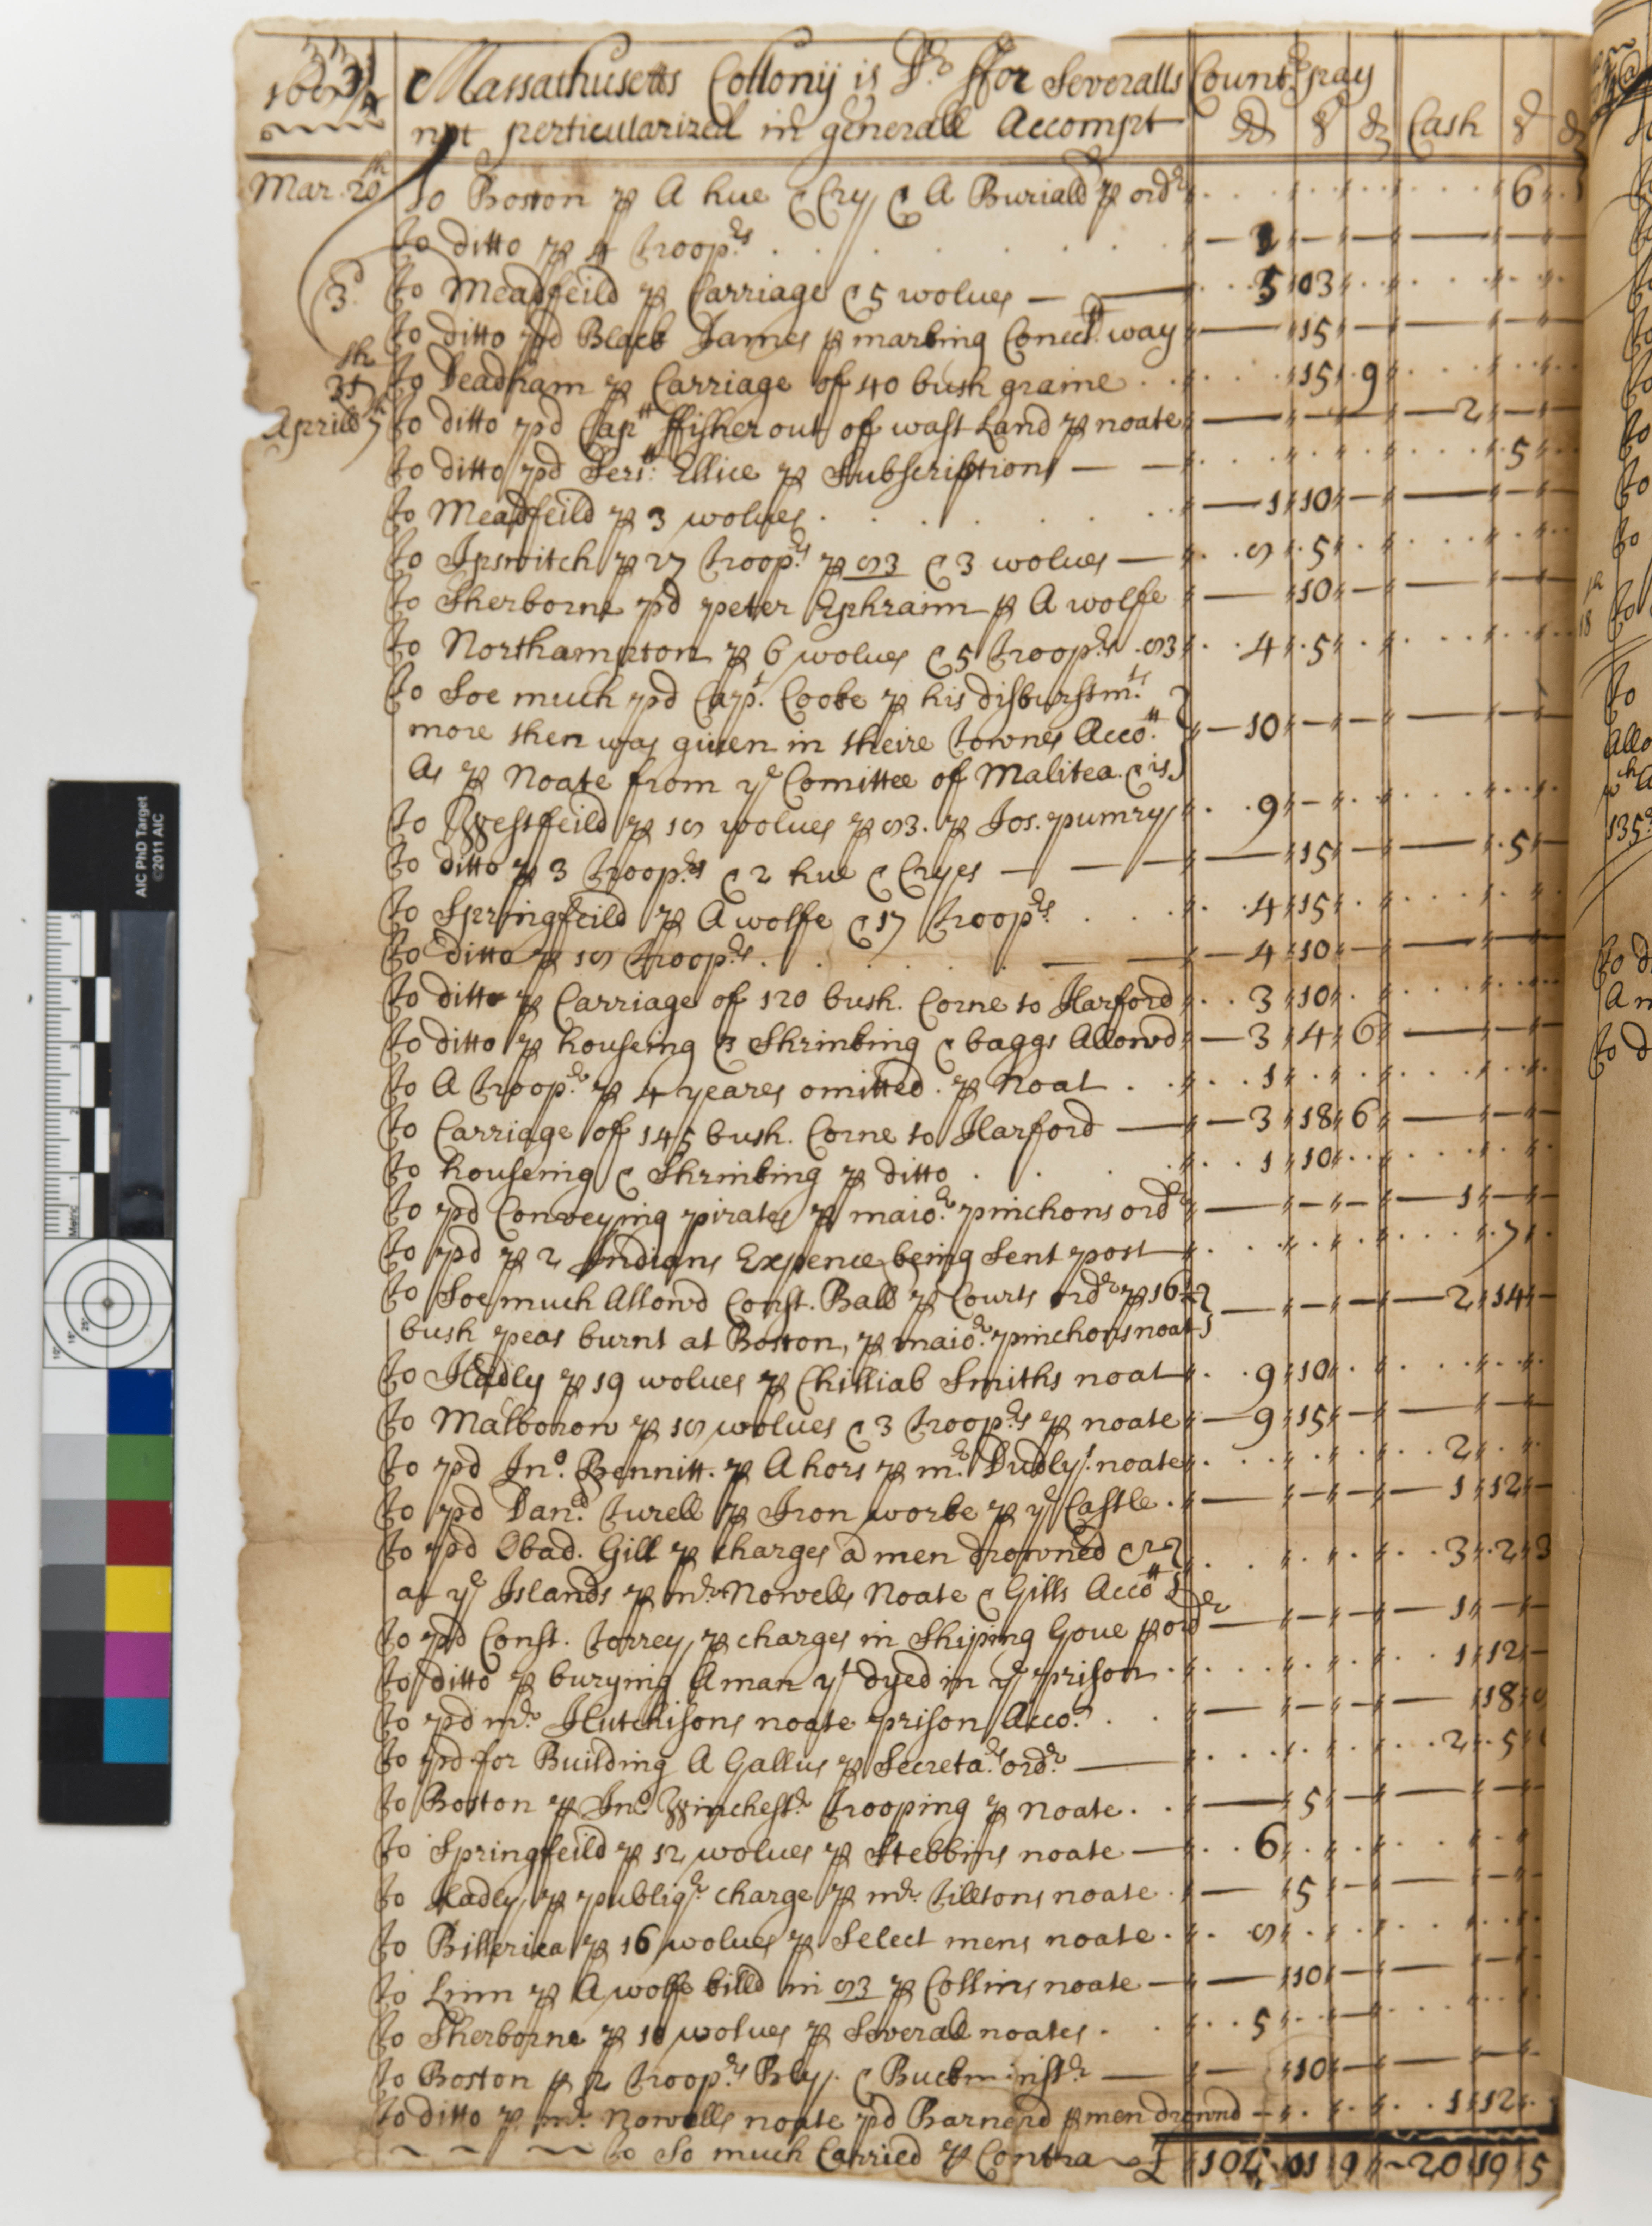 1683/4 Massathusetts Collony is Dr ffor Severalls Countr pay
not perticularized in generall Accompt £ s d Cash s d
Mar. 20th To Boston p A hue & Cry & A Buriall p ordr 6
To ditto p 4 troop:rs 1
3d. To Meadfeild p Carriage & 5 wolves — 5 03
To ditto pd Black James p marking Conectt way 15
31th To Deadham p Carriage of 40 bush graine 15 9
Aprill 7th To ditto pd Captt ffisher out of wast Land p noate — 2
To ditto pd Serjtt Ellice p Subscription — 5
To Meadfeild p 3 wolves 1 10
To Ipswitch p 27 troop:rs p 83 & 3 wolves — 8 5
To Sherborne pd peter Ephraim p A wolfe 10
To Northampton p 6 wolves & 5 troop:rs 83 4 5
To Soe much pd Capt. Cooke p his disburstmts
more then was given in theire townes Accott — 10
As p Noate from ye Comittee of Malitea & is
To Westfeild p 18 wolves p 83. p Jos. pumry 9 -
To ditto p 3 troop:rs & 2 hue & Cryes — 15 — 5
To Springfeild p A wolfe & 17 troop:rs 4 15
To ditto p 18 troop:rs 4 10
To ditto p Carriage of 120 bush. Corne to Harford 3 10
To ditto p houseing & Shrinking & baggs Allowd 3 4 6
To A troop:r p 4 yeares omitted. p Noat 1
To Carriage of 145 bush. Corne to Harford — 3 18 6
To houseing & Shrinking p ditto 1 10
To pd Conveying pirates p maior pinchons ordr — 1
To pd p 2 Indians Expence being Sent post 7
To Soe much Allowd Const. Ball p Courts ordr p 16 — 2 14
bush peas burnt at Boston, p maior pinchons noat
To Hadly p 19 wolves p Chilliab Smiths noat 9 10
To Malborow p 18 wolves & 3 troop:rs p noate 9 15
To pd Jno. Bennitt. p A hors p mr. Dudlys noate 2
To pd Danll Turell p Iron worke p ye Castle. 1 12
To pd Obad. Gill p charges a men drowned & 3 2 3
at ye Islands p mr Nowells Noate & Gills Accott
To pd Const. Torrey, p charges in Shiping Gove p ordr — 1
To ditto p burying A man yt dyed in ye prison 1 12
To pd mr Hutchisons noate prison Acco. 18
To pd for Building A Gallus p Secretars ordr — 2 5
To Boston p Jno Winchestr trooping p noate. 5
To Springfeild p 12 wolves p Stebbins noate — 6
To Hadly p publiqr charge p mr Tilltons noate 5
To Billerica p 16 wolves p Select mens noate 8
To Linn p A wolfe killd in 83 p Collins noate — 10
To Sherborne p 10 wolves p Severall noates 5
To Boston p 2 troop:rs Bly. & Buckminstr — 10
To ditto p mr Nowells noate pd Barnerd p men drownd — 1 12
To So much Carried p Contra £ 104 01 9 20 19 5
AIC PhD Target
©2011 AIC
Metric